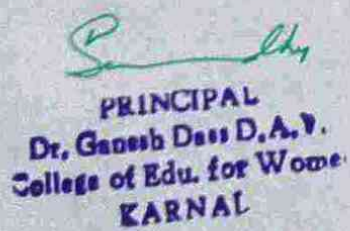 PRINCIPAL
Dr. Ganesh Dass D.A.V.
College of Edu. for Wome
KARNAL